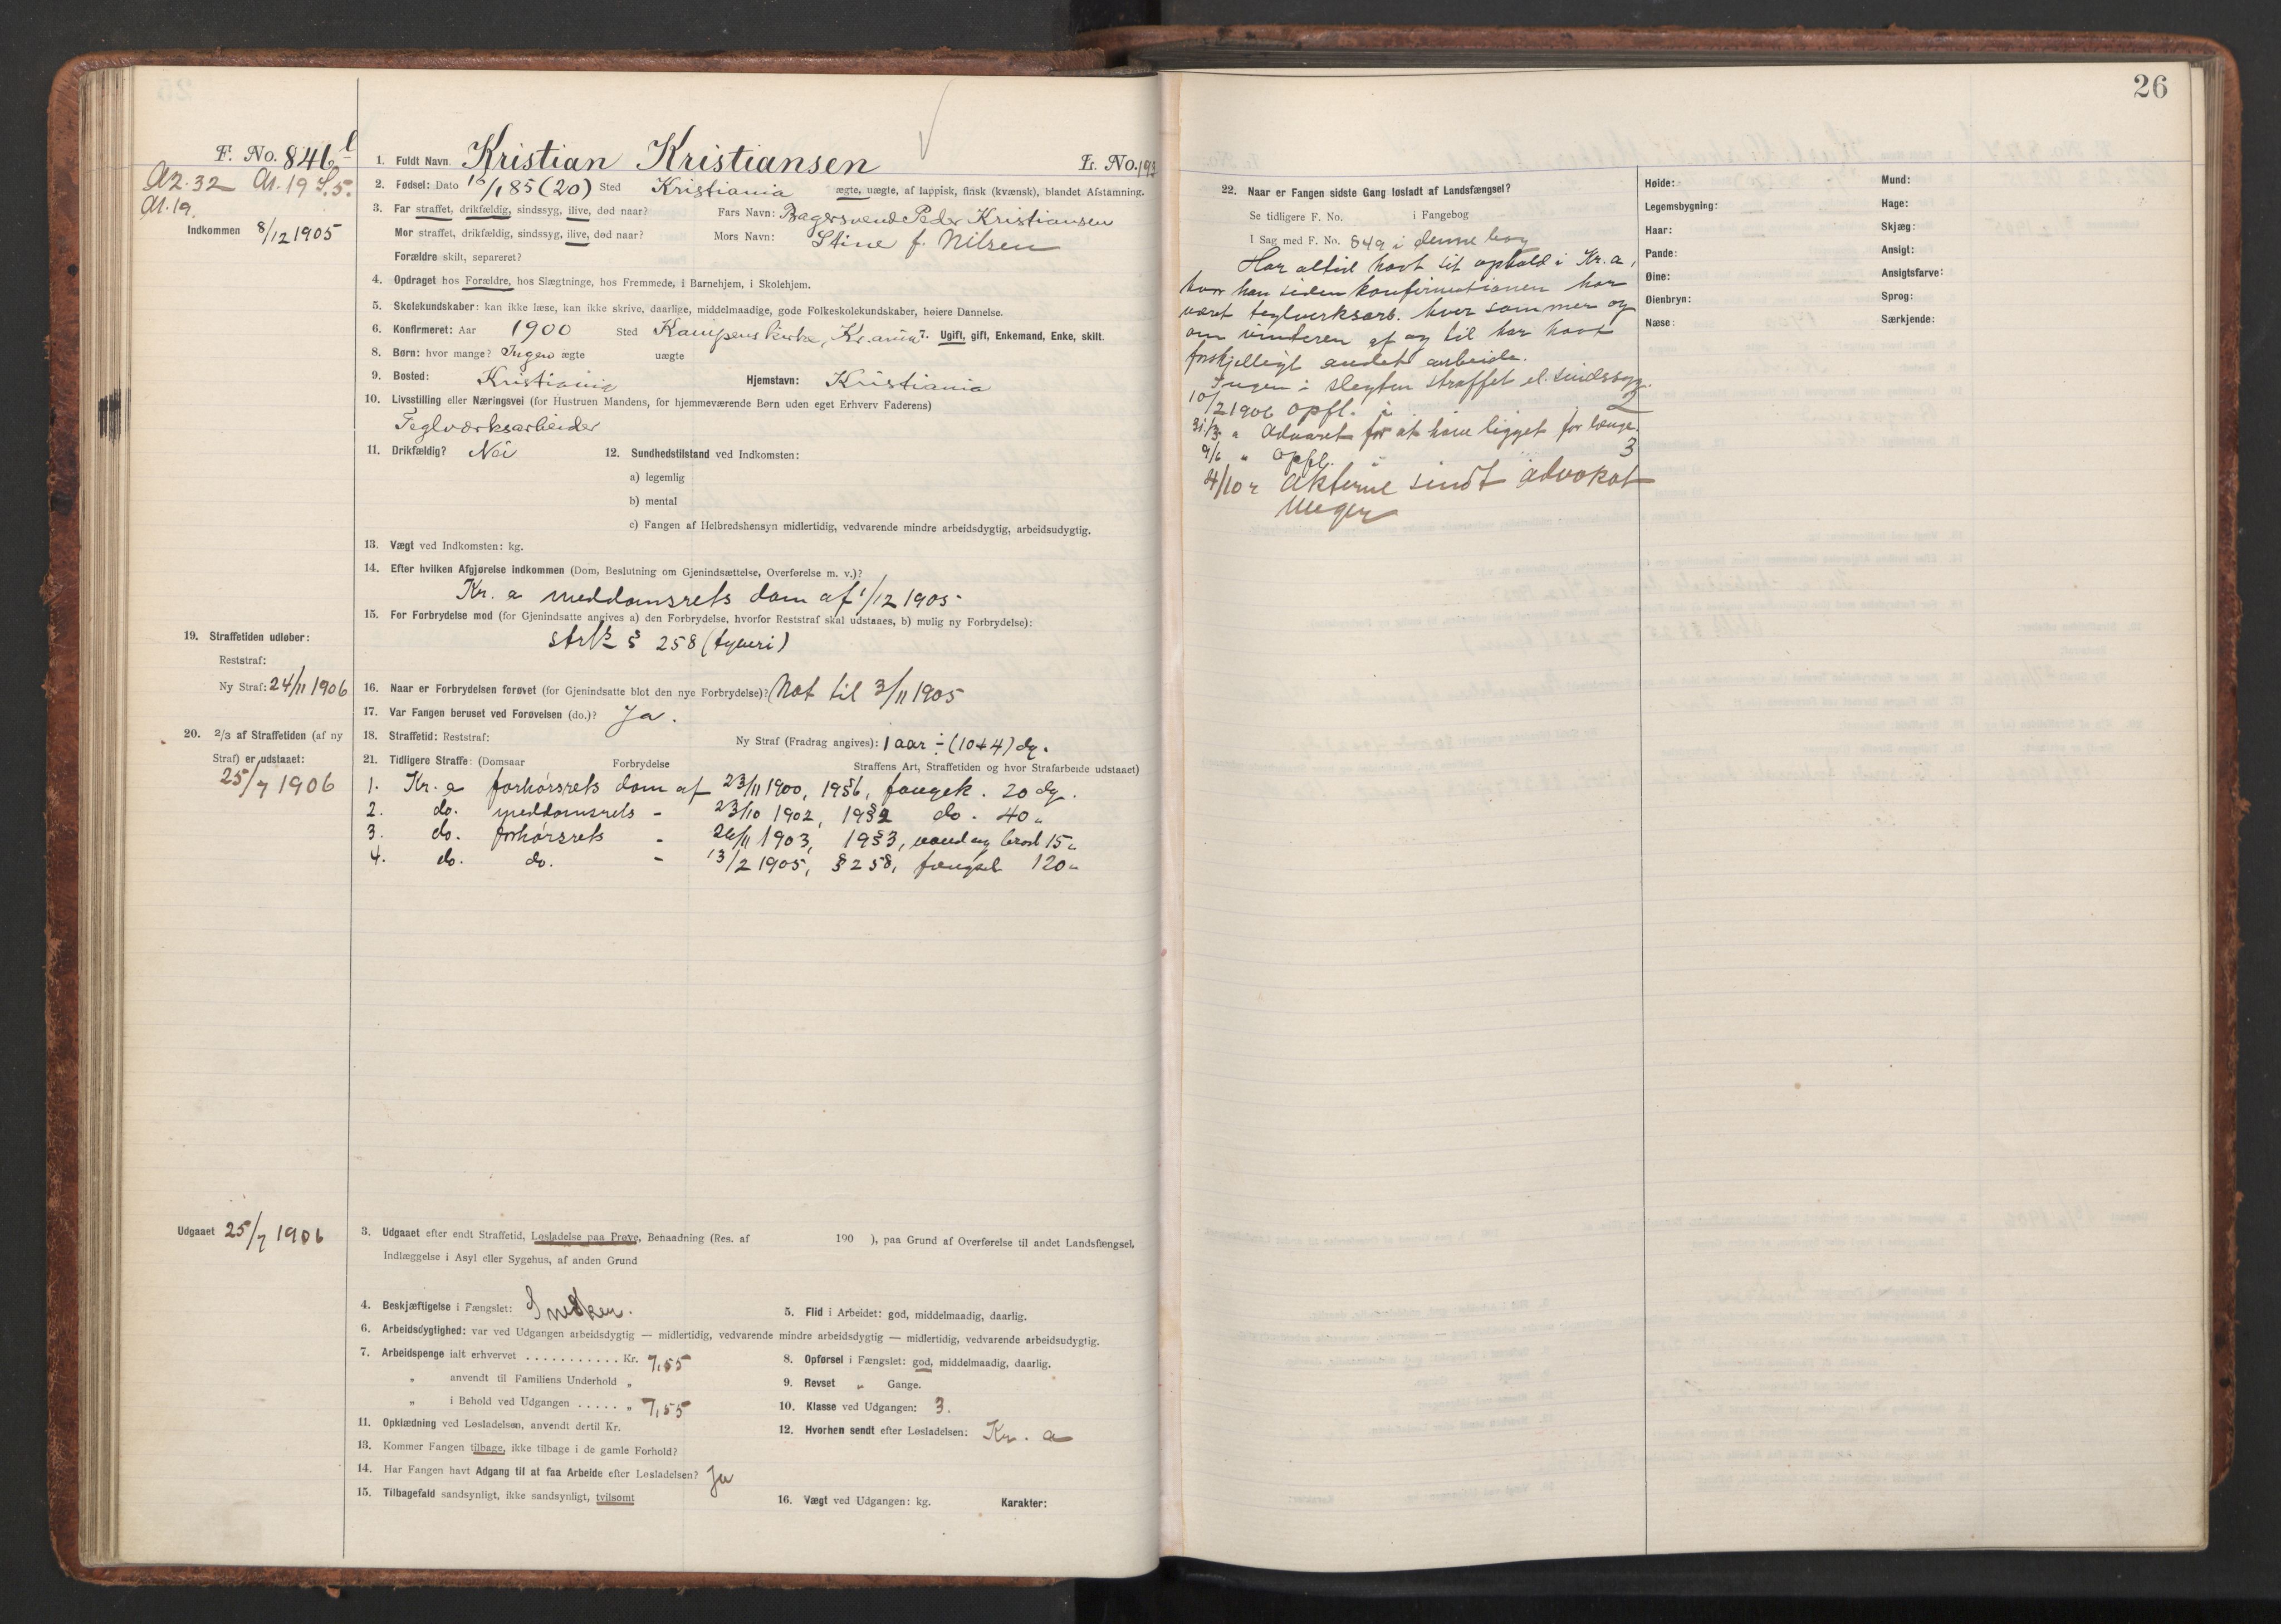 F. No. 846
A2.32 A1.19 S.5.
A1.19.
Indkommen 8/12 1905
1. Fuldt Navn Kristian Kristiansen L. No. 193
2. Fødsel: Dato /1 85 (20) Sted Kristiania ægte, uægte, af lappisk, finsk (kvænsk), blandet Afstamning.
3. Far straffet, drikfældig, sindssyg, ilive, død naar? Fars Navn: Bagersvend Peder Kristiansen
Mor straffet, drikfældig, sindssyg, ilive, død naar? Mors Navn: Stine f. Nilsen
Forældre skilt, separeret?
4. Opdraget hos Forældre, hos Slægtninge, hos Fremmede, i Barnehjem, i Skolehjem.
5. Skolekundskaber: kan ikke læse, kan ikke skrive, daarlige, middelmaadige, gode Folkeskolekundskaber, høiere Dannelse.
6. Konfirmeret: Aar 1900 Sted Kampens kirke, Kr.ania 7. Ugift, gift, Enkemand, Enke, skilt.
8. Børn: hvor mange? Ingen ægte uægte
9. Bosted: Kristiania Hjemstavn: Kristiania
10. Livsstilling eller Næringsvei (for Hustruen Mandens, for hjemmeværende Børn uden eget Erhverv Faderens)
Teglværksarbeider
11. Drikfældig? Nei 12. Sundhedstilstand ved Indkomsten:
a) legemlig
b) mental
c) Fangen af Helbredshensyn midlertidig, vedvarende mindre arbeidsdygtig, arbeidsudygtig.
13. Vægt ved Indkomsten: kg.
14. Efter hvilken Afgjørelse indkommen (Dom, Beslutning om Gjenindsættelse, Overførelse m. v.)?
Kr. a meddomsrets dom af 1/12 1905
15. For Forbrydelse mod (for Gjenindsatte angives a) den Forbrydelse, hvorfor Reststraf skal udstaaes, b) mulig ny Forbrydelse):
strl § 258 (tyveri)
19. Straffetiden udløber:
Reststraf:
Ny Straf: 24/11 1906
16. Naar er Forbrydelsen forøvet (for Gjenindsatte blot den nye Forbrydelse)? Nat til 3/11 1905
17. Var Fangen beruset ved Forøvelsen (do.)? Ja.
20. 2/3 af Straffetiden (af ny
Straf) er udstaaet:
25/7 1906
18. Straffetid: Reststraf: Ny Straf (Fradrag angives): 1 aar ÷ (10+4) dg.
21. Tidligere Straffe: (Domsaar Forbrydelse Straffens Art, Straffetiden og hvor Strafarbeide udstaaet)
1. Kr. a forhørsrets dom af 23/11 1900, 19§6, fængsl. 20 dg.
2. do. meddomsrets - 23/10 1902, 19§2 do. 40 "
3. do. forhørsrets - 26/11 1903, 19§3, vand og brød 15 "
4. do. do. - 13/2 1905, § 258, fængsel 120 "
Udgaaet 25/7 1906
3. Udgaaet efter endt Straffetid, Løsladelse paa Prøve, Benaadning (Res. af 190 ), paa Grund af Overførelse til andet Landsfængsel,
Indlæggelse i Asyl eller Sygehus, af anden Grund
4. Beskjæftigelse i Fængslet: Snedker. 5. Flid i Arbeidet: god, middelmaadig, daarlig.
6. Arbeidsdygtighed: var ved Udgangen arbeidsdygtig — midlertidig, vedvarende mindre arbeidsdygtig — midlertidig, vedvarende arbeidsudygtig.
7. Arbeidspenge ialt erhvervet ........... Kr. 7,55 8. Opførsel i Fængslet: god, middelmaadig, daarlig.
„ anvendt til Familiens Underhold „ 9. Revset „ Gange.
„ i Behold ved Udgangen ..... „ 7,55 10. Klasse ved Udgangen: 3.
11. Opklædning ved Løsladelsen, anvendt dertil Kr. 12. Hvorhen sendt efter Løsladelsen: Kr. a
13. Kommer Fangen tilbage, ikke tilbage i de gamle Forhold?
14. Har Fangen havt Adgang til at faa Arbeide efter Løsladelsen? Ja
15. Tilbagefald sandsynligt, ikke sandsynligt, tvilsomt 16. Vægt ved Udgangen: kg. Karakter:
26
22. Naar er Fangen sidste Gang løsladt af Landsfængsel?
Se tidligere F. No. i Fangebog
I Sag med F. No. 849 i denne bog
Har altid havt sit ophold i Kr. a,
hvor han siden konfirmationen har
været teglverksarb. hver sommer og
om vinteren af og til har havt
forskjelligt andet arbeide.
Ingen i slegten straffet el. sindssyg.
10/2 1906 opfl. i 2
31/3 " Advaret for at have ligget for længe.
9/6 " opfl. " 3
4/10 " Akterne sendt advokat
Meyer
Høide: Mund:
Legemsbygning: Hage:
Haar: Skjæg:
Pande: Ansigt:
Øine: Ansigtsfarve:
Øienbryn: Sprog:
Næse: Særkjende: